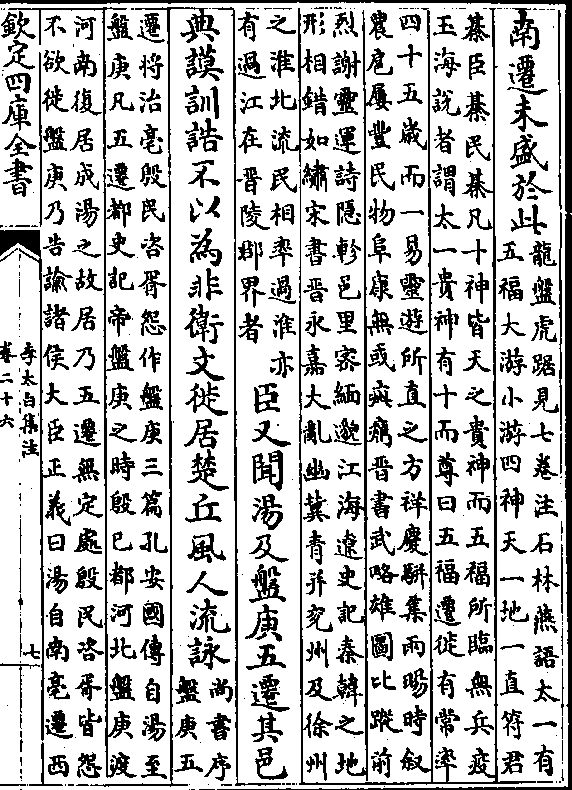 南遷未盛於此
龍盤虎踞見七卷注石林燕語太一有
五福大游小游四神天一地一直符君
綦臣綦民綦凡十神皆天之貴神而五福所臨無兵疫
玉海說者謂太一貴神有十而尊曰五福遷徙有常率
四十五歲而一易靈遊所直之方祥慶駢集雨暘時叙
農扈屢豐民物阜康無或疵癘晉書武略雄圖比蹤前
烈謝靈運詩隱軫邑里密緬邈江海遼史記秦韓之地
形相錯如繡宋書晉永嘉大亂幽冀青并兖州及徐州
之淮北流民相率過淮亦
有過江在晉陵郡界者
臣又聞湯及盤庚五遷其邑
典謨訓誥不以為非衛文徙居楚丘風人流詠
尚書序
盤庚五
遷將治亳殷民咨胥怨作盤庚三篇孔安國傳自湯至
盤庚凡五遷都史記帝盤庚之時殷已都河北盤庚渡
河南復居成湯之故居乃五遷無定處殷民咨胥皆怨
不欲徙盤庚乃告諭諸侯大臣正義曰湯自南亳遷西
欽定四庫全書
李太白集注
卷二十六
七